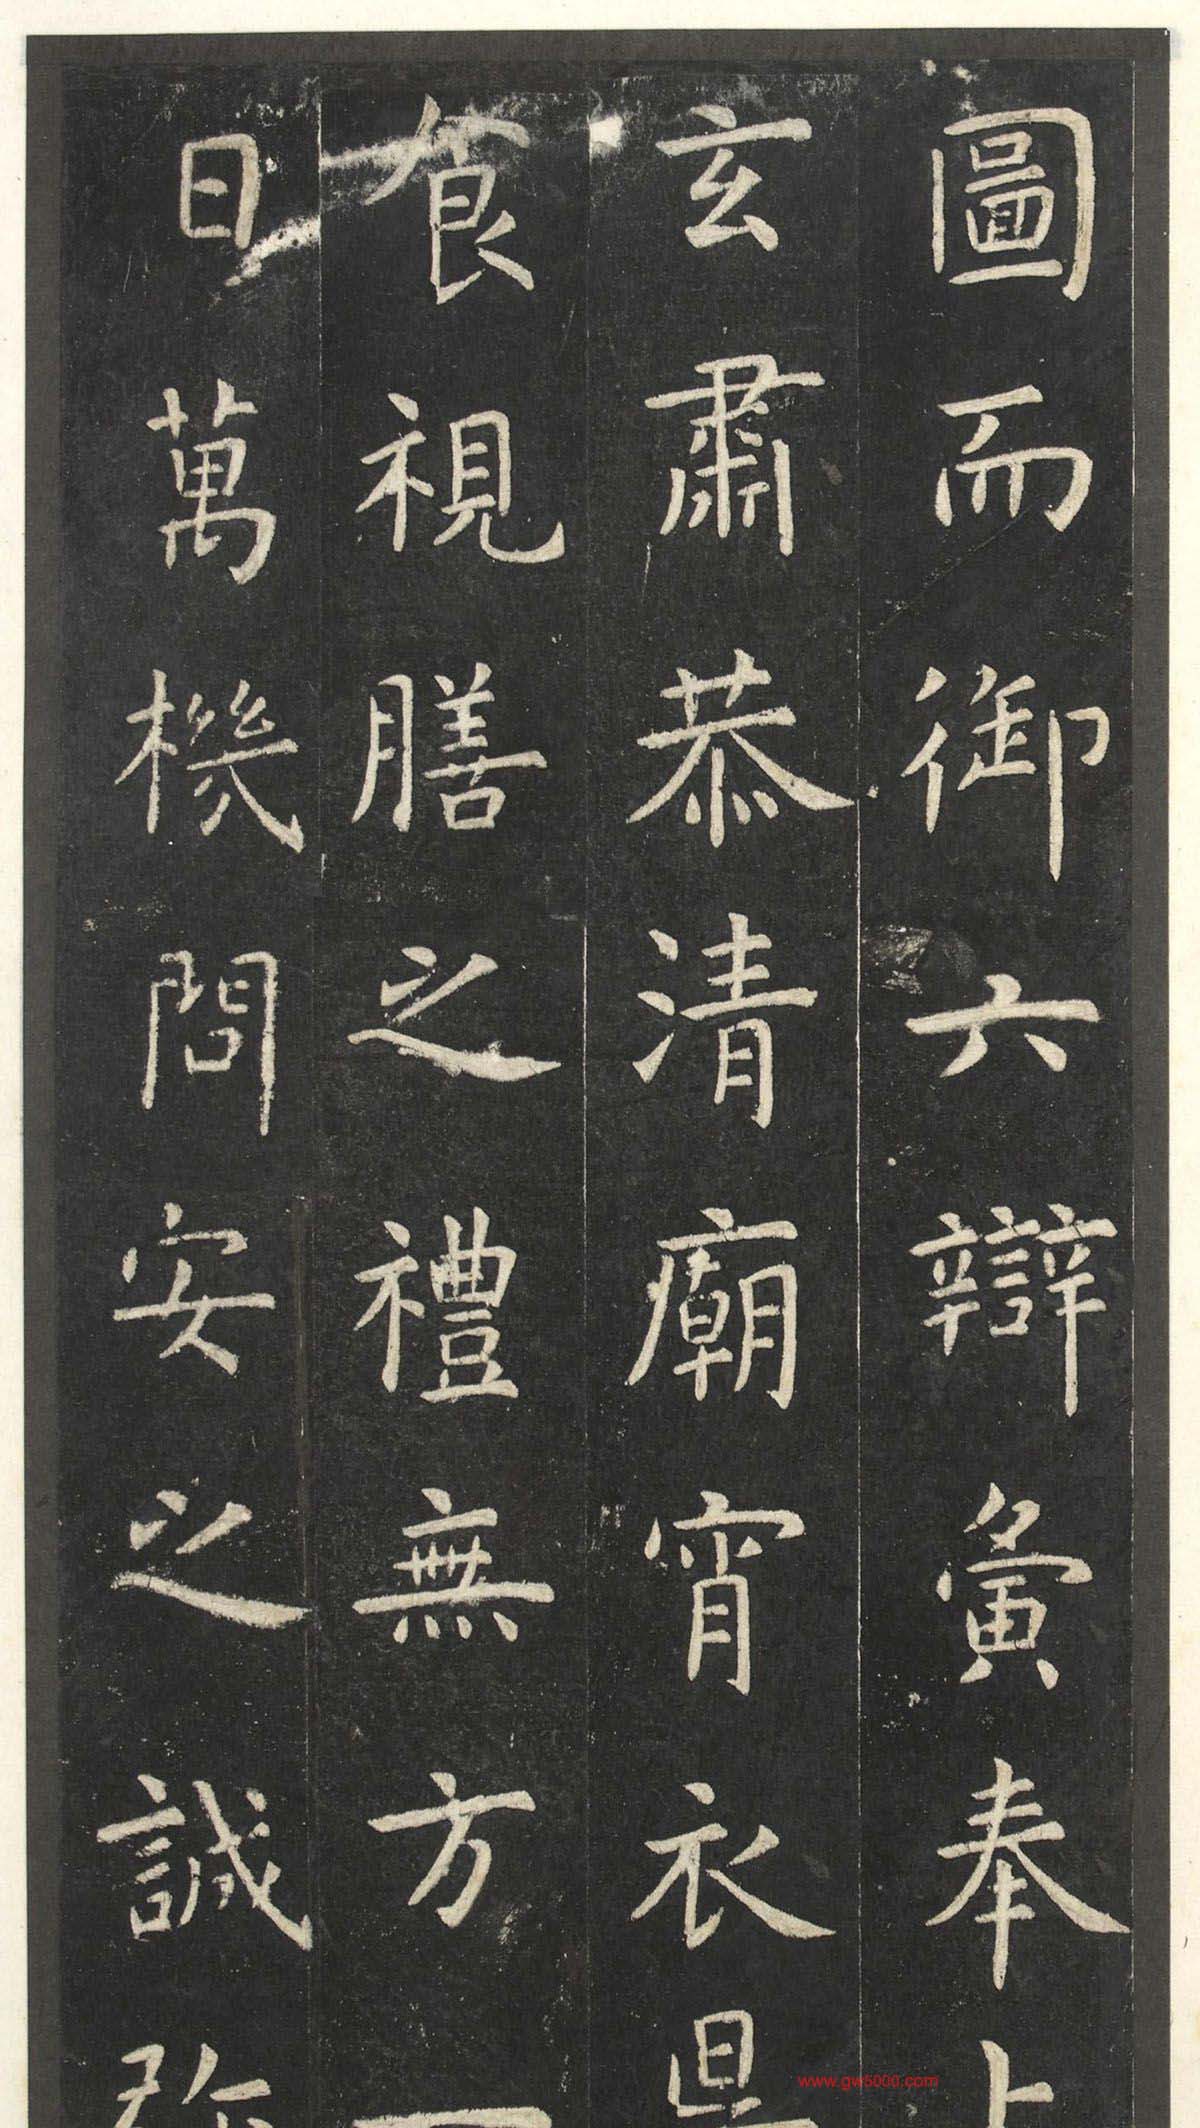 圖而御六辯寅奉上
玄肅恭清廟宵衣
食視膳之禮無方一
日萬機問安之誠
www.gw5000.com